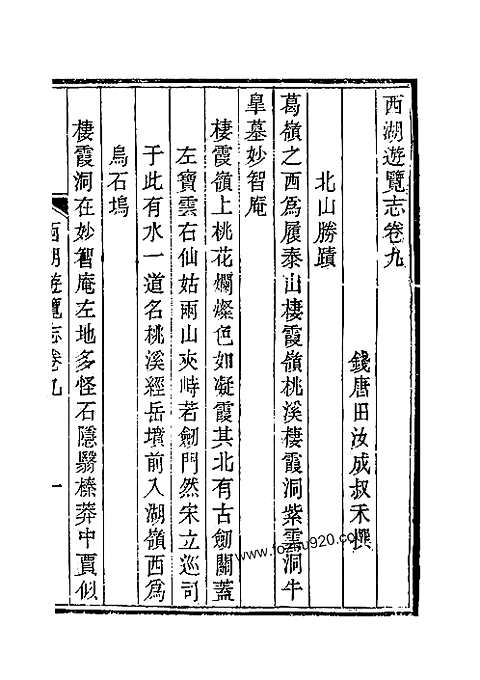 西湖遊覽志卷九
錢唐田汝成叔禾撰
北山勝蹟
葛嶺之西爲履泰山棲霞嶺桃溪棲霞洞紫雲洞牛
皐墓妙智庵
棲霞嶺上桃花爛燦色如凝霞其北有古劒關蓋
左寶雲右仙姑兩山夾峙若劒門然宋立巡司
于此有水一道名桃溪經岳墳前入湖嶺西爲
烏石塢
棲霞洞在妙智庵左地多怪石隱翳榛莽中賈似
西湖遊覽志卷九
一